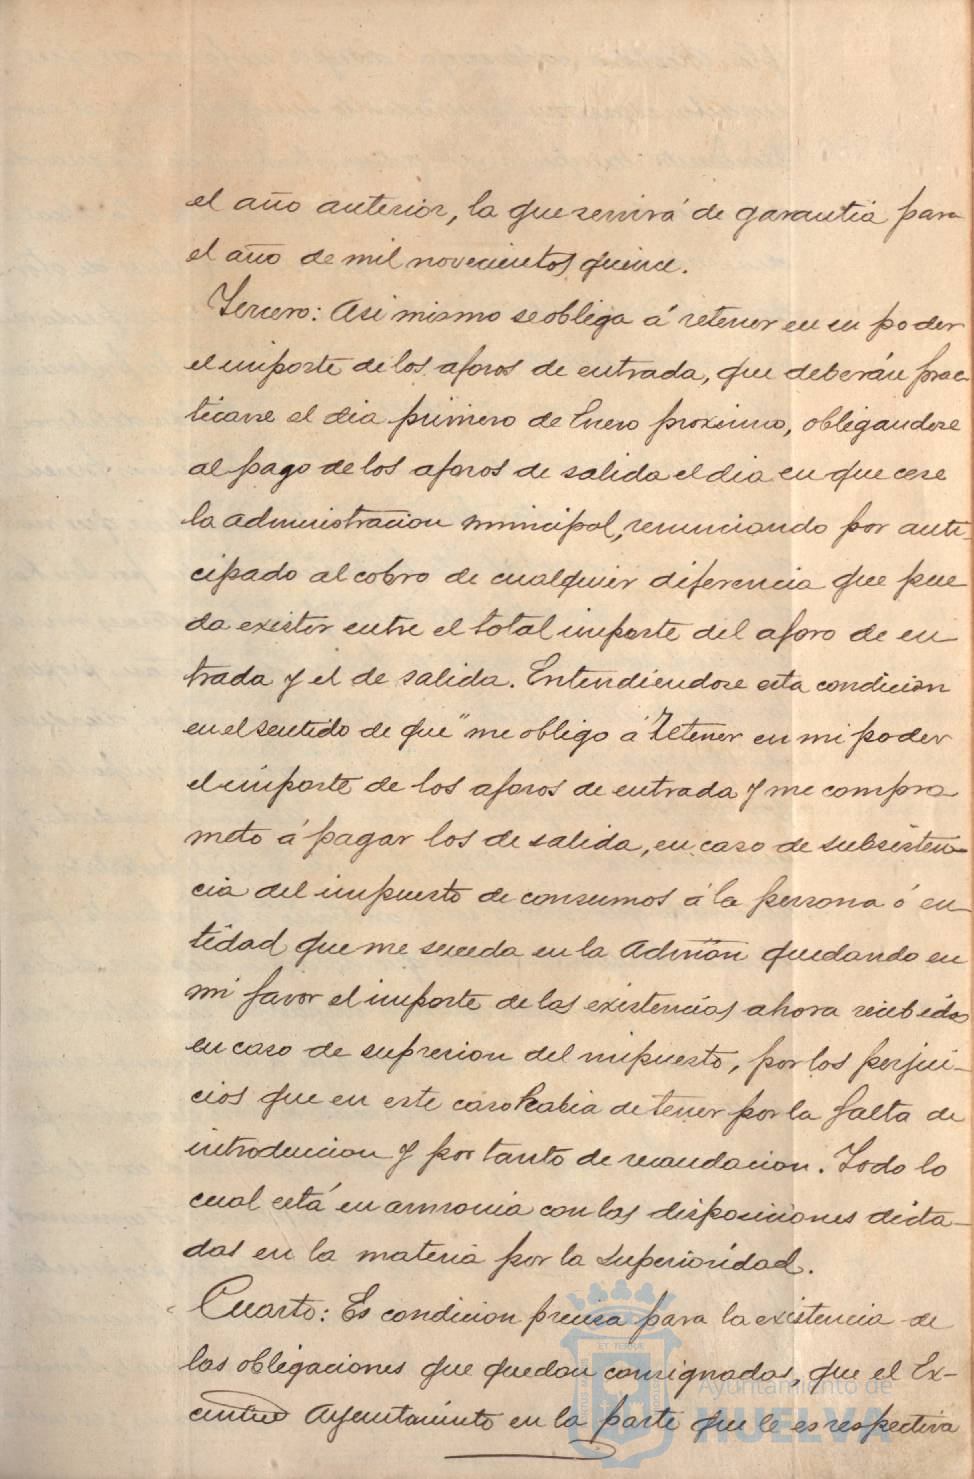 el año anterior, la que servirá de garantia para
el año de mil novecientos quince.
Tercero: Asi mismo se obliga á retener en su poder
el importe de los aforos de entrada, que deberán prac-
ticarse el dia primero de Enero proximo, obligandose
al pago de los aforos de salida el dia en que cese
la administracion municipal, renunciando por anti-
cipado al cobro de cualquier diferencia que pue
da existir entre el total importe del aforo de en
trada y el de salida. Entendiendose esta condicion
en el sentido de que "me obligo á retener en mi poder
el importe de los aforos de entrada y me compro
meto á pagar los de salida, en caso de subsisten-
cia del impuesto de consumos á la persona ó en
tidad que me suceda en la Admón quedando en
mi favor el importe de las existencias ahora recibidas
en caso de supresion del impuesto, por los perjui-
cios que en este caso habia de tener por la falta de
introduccion y por tanto de recaudacion. Todo lo
cual está en armonia con las disposiciones dicta-
das en la materia por la Superioridad.
Cuarto: Es condicion precisa para la existencia de
las obligaciones que quedan consignadas, que el Ex-
Ayuntamiento en la parte que le es respectiva
ET TERRA
Ayuntamiento de
HUELVA